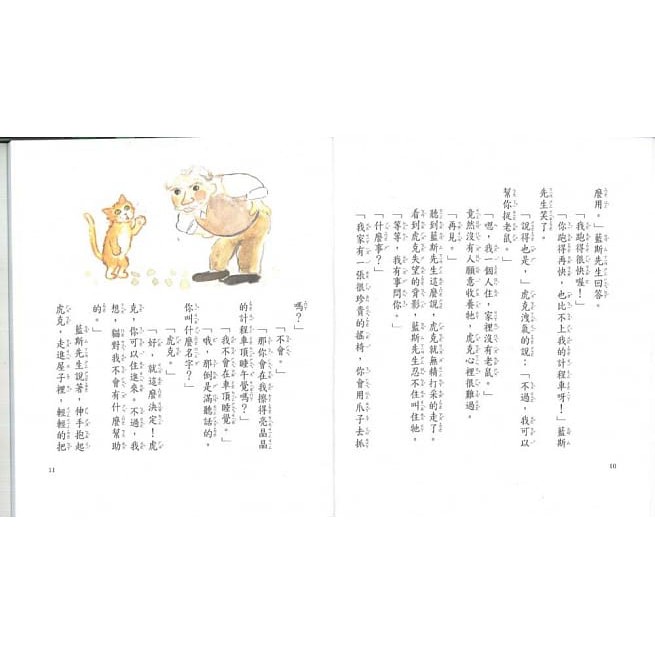 麼用。」藍斯先生回答。
「我跑得很快喔！」
「你跑得再快，也比不上我的計程車呀！」藍斯
先生笑了。
「說得也是，」虎克洩氣的說：「不過，我可以
幫你捉老鼠。」
「嗯，我一個人住，家裡沒有老鼠。」
竟然沒有人願意收養牠，虎克心裡很難過，
「再見。」
聽到藍斯先生這麼說，虎克就無精打采的走了。
看到虎克失望的背影，藍斯先生忍不住叫住牠，
「等等，我有事問你。」
「什麼事？」
「我家有一張很珍貴的搖椅，你會用爪子去抓
10
嗎？」
「不會。」
「那你會在我擦得亮晶晶
的計程車頂睡午覺嗎？」
「我不會在車頂睡覺。」
「哦，那倒是滿聽話的。
你叫什麼名字？」
「虎克。」
「好，就這麼決定！虎
克，你可以住進來。不過，我
想，貓對我不會有什麼幫助
的。」
藍斯先生說著，伸手抱起
虎克，走進屋子裡，輕輕的把
11